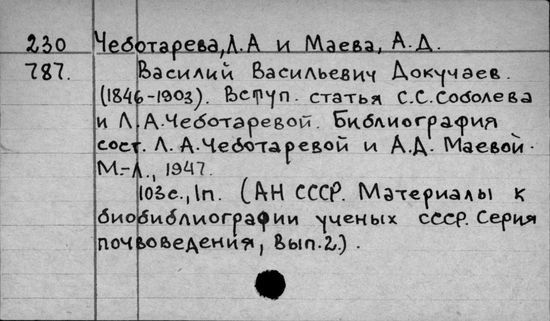 230 Чеботарева, Л.А и Маева, А.Д.
787. Василий Васильевич Докучаев.
(1846-1903). Вступ. статья С.С.Соболева
и Л.А.Чеботаревой. Библиография
сост. Л.А.Чеботаревой и А.Д. Маевой.
М.-Л., 1947.
103с., 1п. (АН СССР. Материалы к
биобиблиографии ученых СССР. Серия
почвоведения, вып.2.).